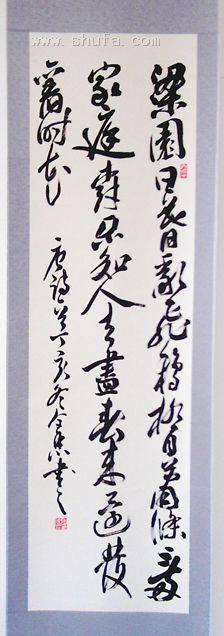 www.shufa.com
梁園日暮亂飛鴉極目蕭條三兩
家庭樹不知人去盡春來還發
舊時花
唐詩 丁亥冬 書